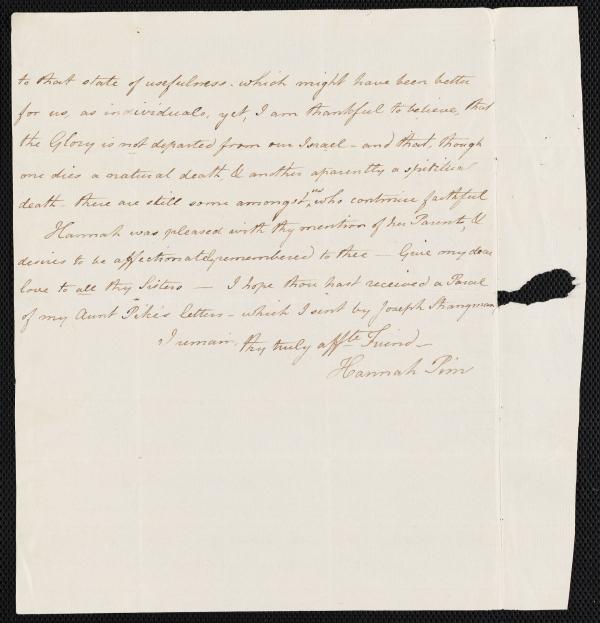 to that state of usefulness - which might have been better
for us, as individuals, yet, I am thankful to believe, that
the Glory is not departed from our Israel - and that, though
one dies a natural death & another aparently a spiritual
death - there are still some amongst us who continue faithful
Hannah was pleased with thy mention of her Parents, &
desires to be affectionately remembered to thee - Give my dear
love to all thy Sisters - I hope thou hast received a Parcel
of my Aunt Pike's letters - which I sent by Joseph Strangman
I remain, thy truly affte Friend -
Hannah Pim